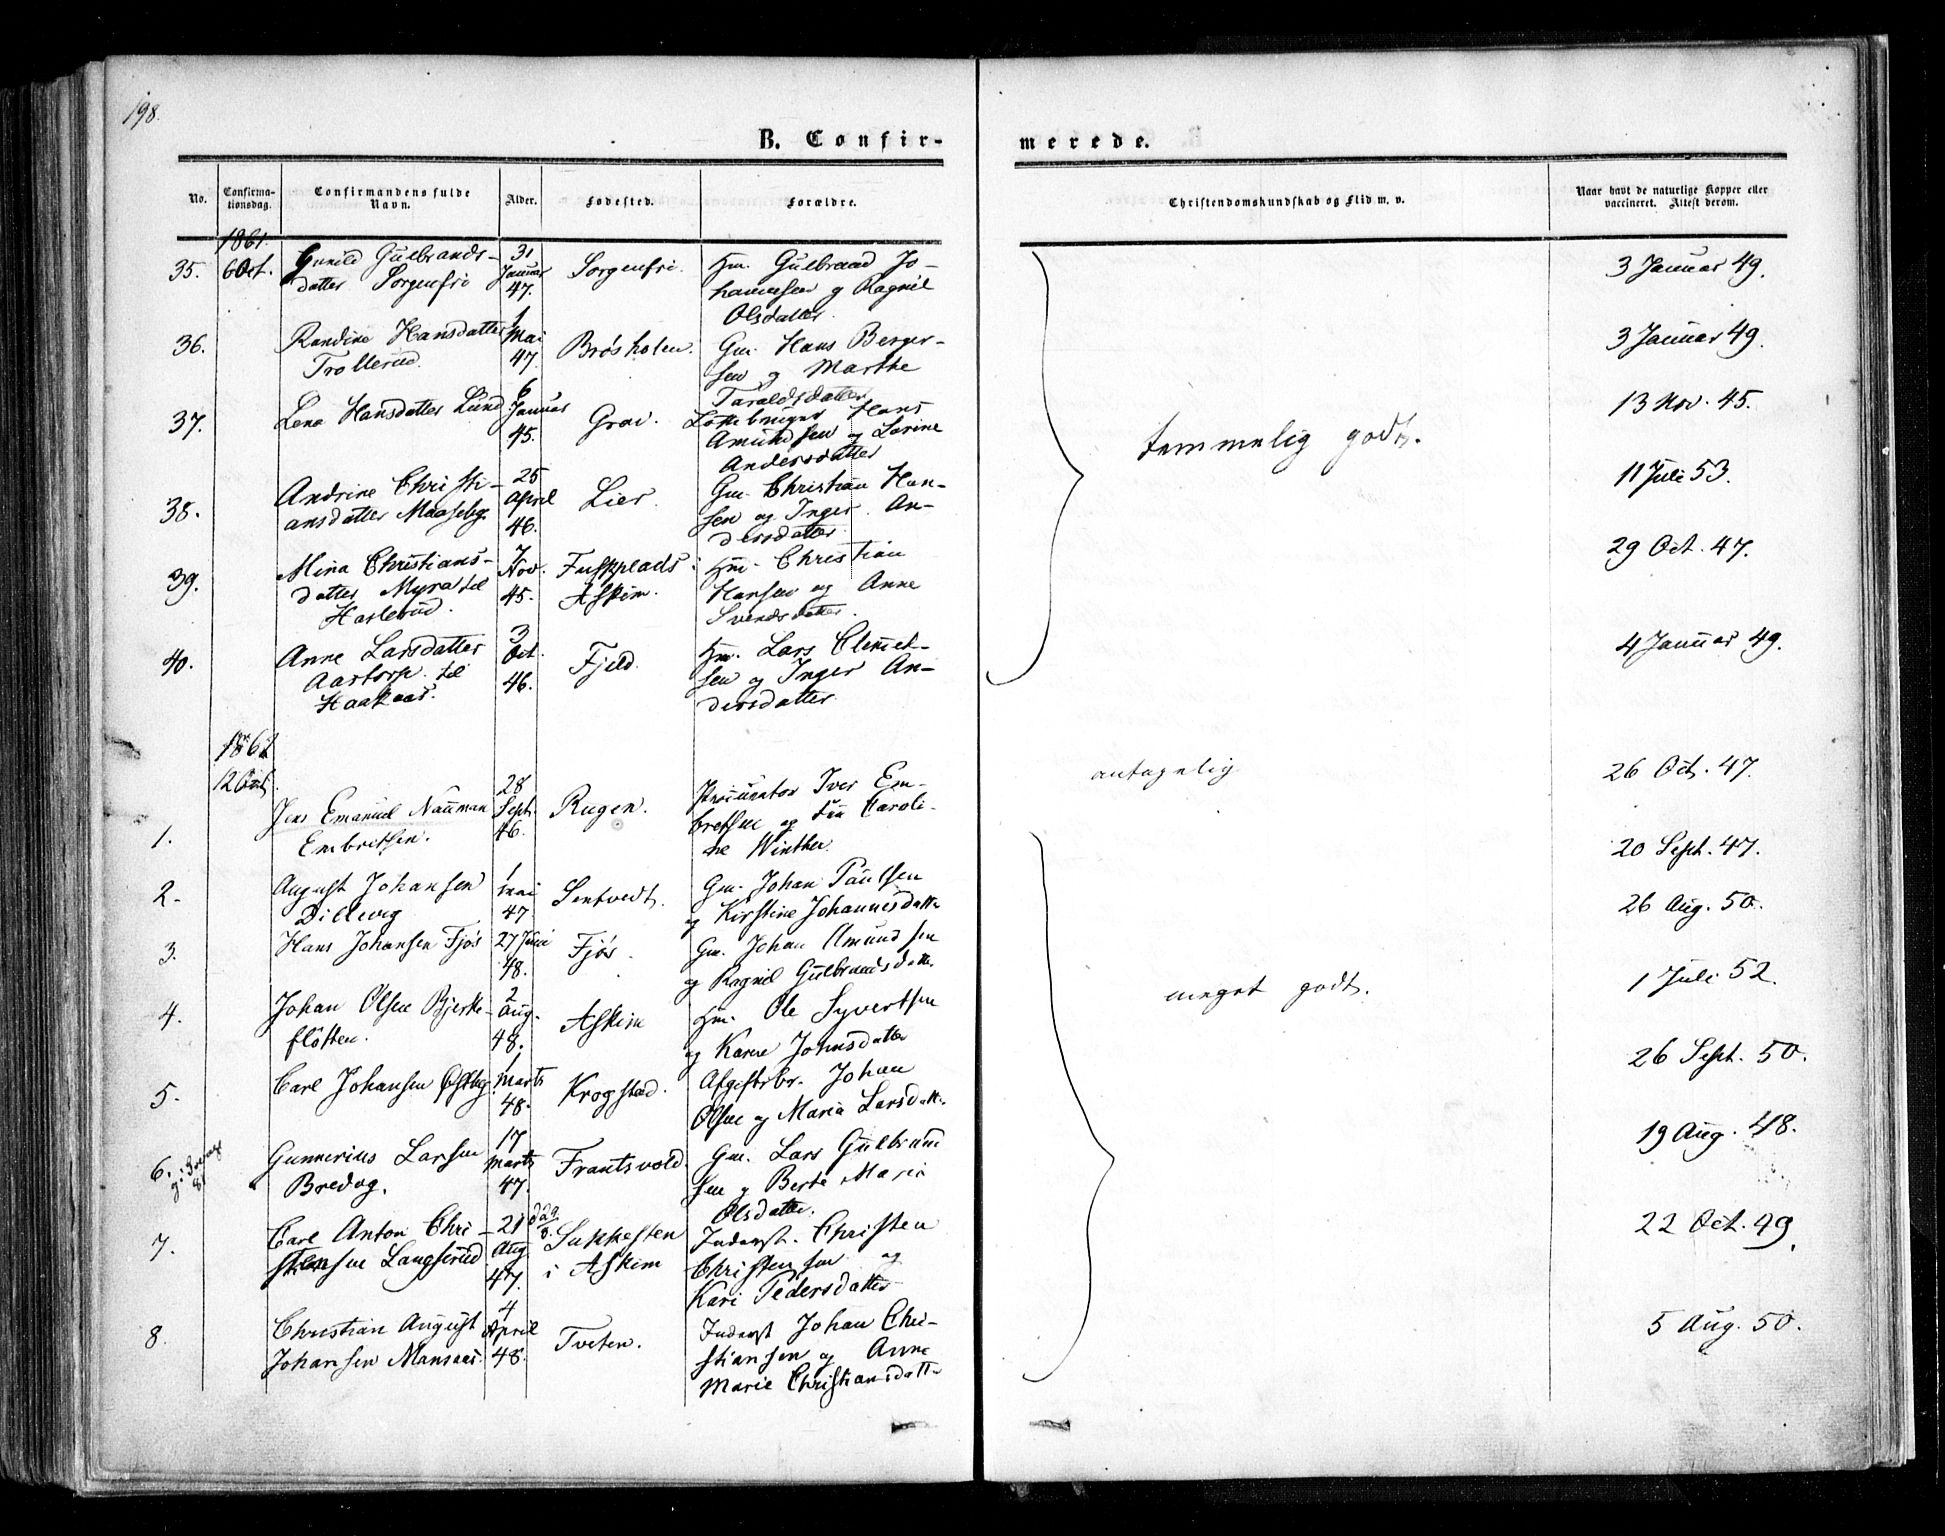 198.
B. Confir-
merede.
No.
Confirma-
tionsdag.
Confirmandens fulde
Navn.
Alder.
Fødested.
Forældre.
Christendomskundskab og Flid m. v.
Naar havt de naturlige Kopper eller
vaccineret. Attest derom.
1861.
35. 6 Oct. Gunild Gulbrands- 31 Sorgenfri. Hm. Gulbrand Jo- 3 Januar 49.
datter Sorgenfri Januar hannesen og Ragnil
47. Olsdatter.
36. Randine Hansdatter 1 Mai Brøsholen. Gm. Hans Berger- 3 Januar 49.
Trollerud. 47. sen og Marthe
Taraldsdatter
37. Lena Hansdatter Lund 6 Januar Grav. Hans 13 Nov. 45.
45. Amundsen og Larine
Andersdatter
temmelig godt.
38. Andrine Christi- 25 April Lier. Gm. Christian Han- 11 Juli 53.
ansdatter 46. sen og Inger An-
dersdatter
39. Mina Christians- 7 Nov. Christian 29 Oct. 47.
datter Myra til 45. Askim. Hansen og Anne
Haslerud. Svendsdatter.
40. Anne Larsdatter 3 Oct. Fjeld. Hm. Lars Clemet- 4 Januar 49.
Aastorp til 46. sen og Inger An-
Haakaas. dersdatter
1862
12 Oct.
1. Jens Emanuel Nauman 28 Sept. Rugen. Procurator Iver Em- antagelig 26 Oct. 47.
Embretsen. 46. bretsen og Caroli-
ne Winther.
20 Sept. 47.
2. August Johansen 1 Mai Sentvedt. Gm. Johan Paulsen 26 Aug. 50.
Dillevig 47. og Kirstine Johannesdatter
3. Hans Johansen Fjøs 27 Juni Fjøs. Gm. Johan Amundsen 1 Juli 52.
48. og Ragnil Gulbrandsdatter
meget godt.
4. Johan Olsen Bjerke- 2 Aug. Askim Hm. Ole Syvertsen 26 Sept. 50.
fløtten. 48. og Karen Johnsdatter
5. Carl Johansen 1 Marts Krogstad. Johan
48. Olsen og Maria Larsdatter
6. Gunnerius Larsen 17 Marts Frantsvold. Gm. Lars Gulbrand 19 Aug. 48.
Bredog. 47. sen og Berte Maria
Olsdatter.
7. Carl Anton Chri- 21 Aug Sukkesten Inderst. Christen 22 Oct. 49.
stensen Langserud 47. i Askim Christensen og
Kari Pedersdatter
8. Christian August 4 April Tveten. Inderst Johan Chri- 5 Aug. 50.
Johansen Mansaas. 48. stiansen og Anne
Marie Christiansdatter